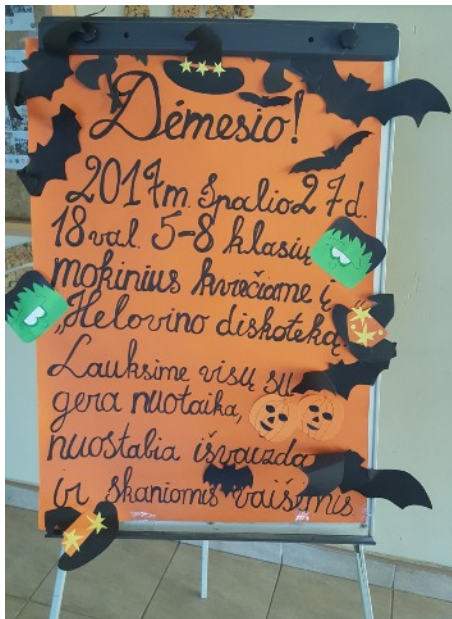 Dėmesio!
2017m. Spalio 27d.
18 val. 5-8 klasių
mokinius kviečiame į
„Helovino diskoteką.
Lauksime visų su
gera nuotaika,
nuostabia išvaizda
ir skaniomis vaišėmis